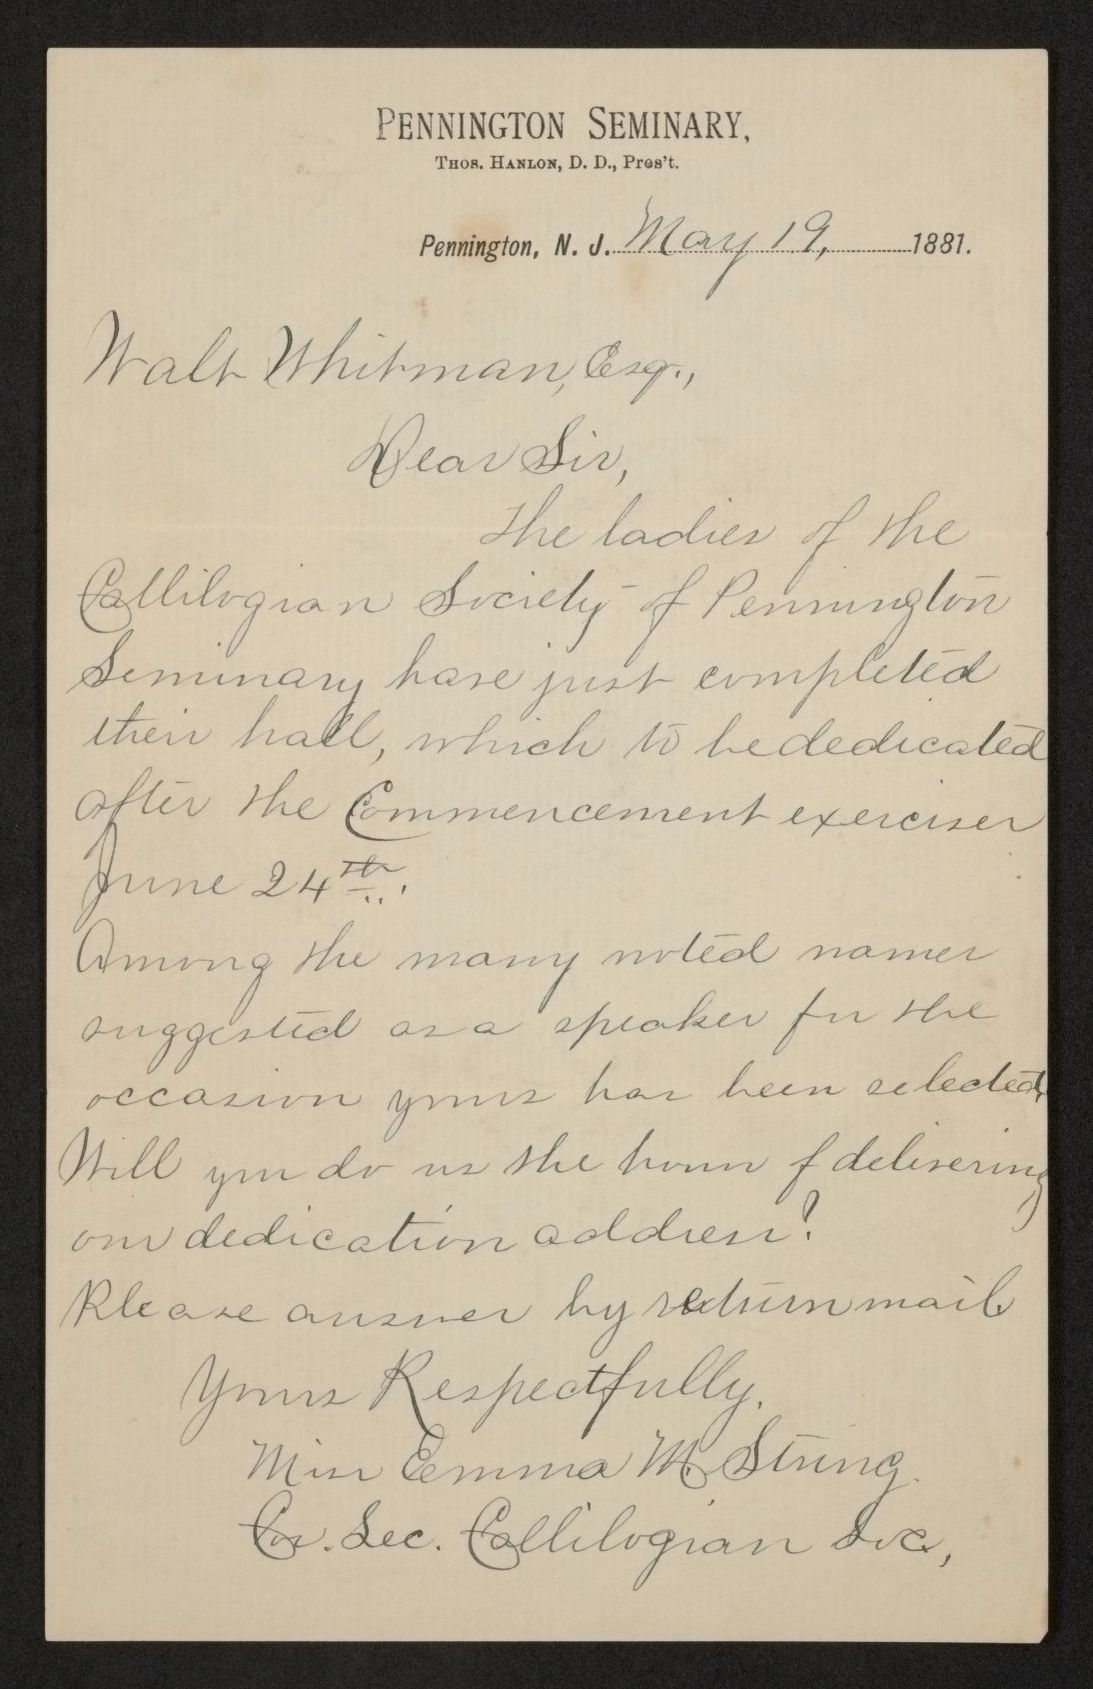 PENNINGTON SEMINARY,
THOS. HANLON, D. D., Pres't.
Pennington, N. J. May 19, 1881.
Walt Whitman, Esq.,
Dear Sir,
The ladies of the
Callilogian Society of Pennington
Seminary have just completed
their hall, which to be dedicated
after the Commencement exercises
June 24th.
Among the many noted names
suggested as a speaker for the
occasion yours has been selected.
Will you do us the honor of delivering
our dedication address?
Please answer by return mail
Yours Respectfully.
Miss Emma M. String.
Cor. Sec. Callilogian Soc.,